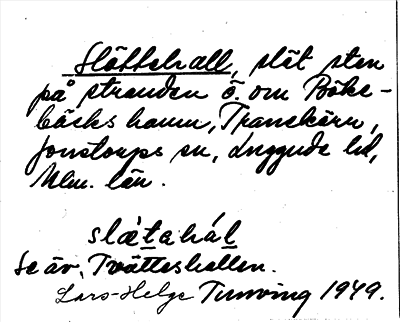 Slättehall, slät sten
på stranden ö. om Böke-
bäcks hamn, Tranekärr,
Jonstorps sn, Luggude hd,
Mlm. län.
slætahál
Se äv. Tvätteshallen.
Lars-Helge Tunving 1949.